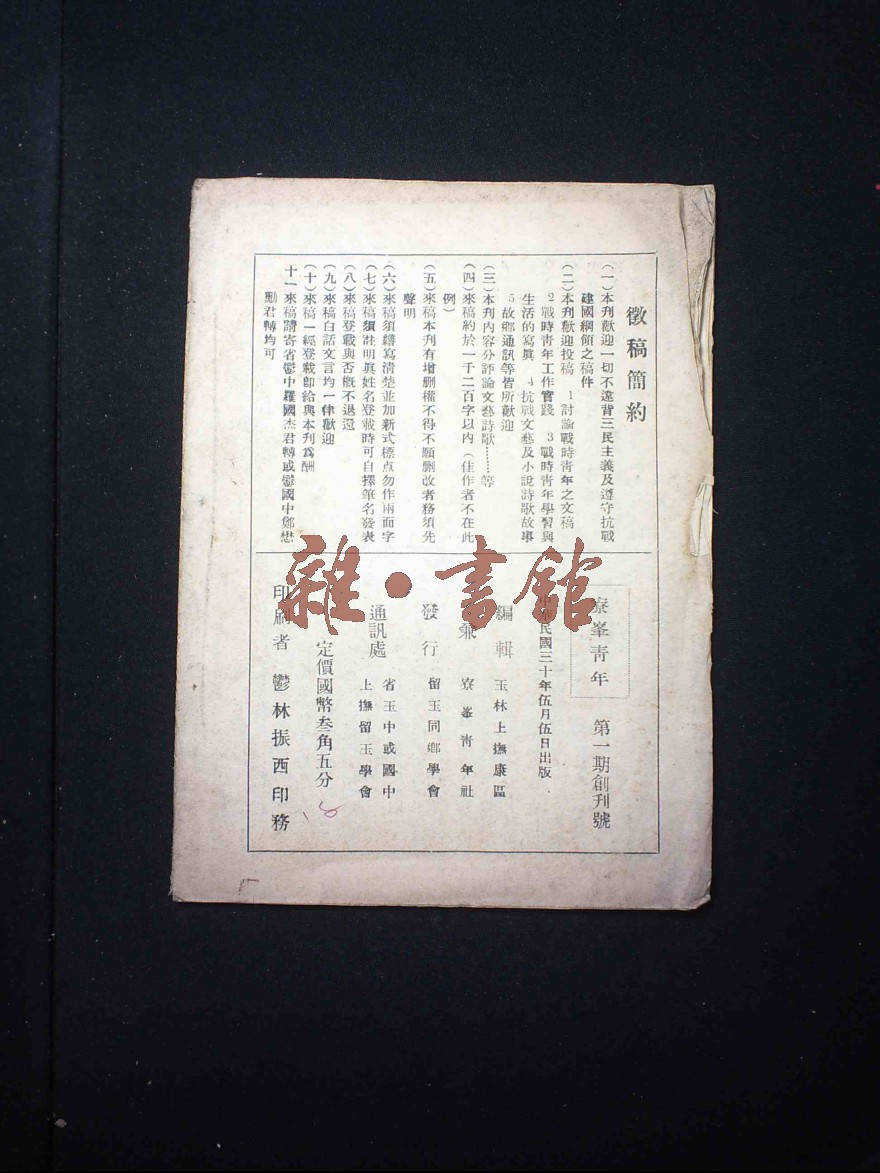 徵稿簡約
(一)本刊歡迎一切不違背三民主義及遵守抗戰
建國綱領之稿件
(二)本刊歡迎投稿 1討論戰時青年之文稿
2戰時青年工作實踐 3戰時青年學習與
生活的寫真 4抗戰文藝及小說詩歌故事
5故鄉通訊等皆所歡迎
(三)本刊內容分評論文藝詩歌………等
(四)來稿約於一千二百字以內(佳作者不在此
例)
(五)來稿本刊有增刪權不得不願刪改者務須先
聲明
(六)來稿須繕寫清楚並加新式標点勿作兩面字
(七)來稿須註明眞姓名登載時可自擇筆名發表
(八)來稿登載與否概不退還
(九)來稿白話文言均一律歡迎
(十)來稿一經登載卽給與本刊爲酬
十一來稿請寄省鬱中羅國杰君轉或鬱國中鄭懋
勳君轉均可
寮峯青年 第一期創刊號
民國三十年伍月伍日出版
編輯 玉林上撫康區
兼 寮峯青年社
發行 留玉同鄉學會
通訊處 省玉中或國中
上撫留玉學會
定價國幣叁角五分
印刷者 鬱林振西印務
雜·書館